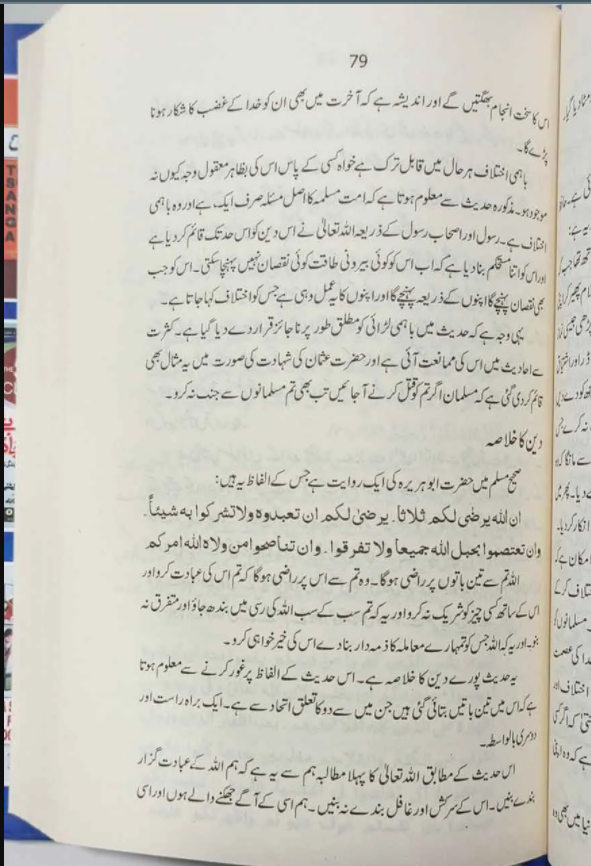 79
اس کا سخت انجام بھگتیں گے اور اندیشہ ہے کہ آخرت میں بھی ان کو خدا کے غضب کا شکار ہونا
پڑے گا۔
باہمی اختلاف ہر حال میں قابل ترک ہے خواہ کسی کے پاس اس کی بظاہر معقول وجہ کیوں نہ
موجود ہو۔ مذکورہ حدیث سے معلوم ہوتا ہے کہ امت مسلمہ کا اصل مسئلہ صرف ایک ہے اور وہ باہمی
اختلاف ہے۔ رسول اور اصحاب رسول کے ذریعہ اللہ تعالیٰ نے اس دین کو اس حد تک قائم کر دیا ہے
اور اس کو اتنا مستحکم بنا دیا ہے کہ اب اس کو کوئی بیرونی طاقت کوئی نقصان نہیں پہنچا سکتی۔ اس کو جب
بھی نقصان پہنچے گا اپنوں کے ذریعہ پہنچے گا اور اپنوں کا یہ عمل وہی ہے جس کو اختلاف کہا جاتا ہے۔
یہی وجہ ہے کہ حدیث میں باہمی لڑائی کو مطلق طور پر ناجائز قرار دے دیا گیا ہے۔ کثرت
سے احادیث میں اس کی ممانعت آئی ہے اور حضرت عثمان کی شہادت کی صورت میں یہ مثال بھی
قائم کر دی گئی ہے کہ مسلمان اگر تم کو قتل کرنے آ جائیں تب بھی تم مسلمانوں سے جنگ نہ کرو۔
دین کا خلاصہ
صحیح مسلم میں حضرت ابو ہریرہ کی ایک روایت ہے جس کے الفاظ یہ ہیں:
ان الله يرضٰى لكم ثلاثا۔ يرضىٰ لكم ان تعبدوه ولا تشركوا به شيئاً۔
وان تعتصموا بحبل الله جميعاً ولا تفرقوا۔ وان تناصحوا من ولاه الله امركم
اللہ تم سے تین باتوں پر راضی ہوگا۔ وہ تم سے اس پر راضی ہوگا کہ تم اس کی عبادت کرو اور
اس کے ساتھ کسی چیز کو شریک نہ کرو اور یہ کہ تم سب کے سب اللہ کی رسی میں بندھ جاؤ اور متفرق نہ
بنو۔ اور یہ کہ اللہ جس کو تمہارے معاملہ کا ذمہ دار بنا دے اس کی خیر خواہی کرو۔
یہ حدیث پورے دین کا خلاصہ ہے۔ اس حدیث کے الفاظ پر غور کرنے سے معلوم ہوتا
ہے کہ اس میں تین باتیں بتائی گئی ہیں جن میں سے دو کا تعلق اتحاد سے ہے۔ ایک براہ راست اور
دوسری بالواسطہ۔
اس حدیث کے مطابق اللہ تعالیٰ کا پہلا مطالبہ ہم سے یہ ہے کہ ہم اللہ کے عبادت گزار
بندے بنیں۔ اس کے سرکش اور غافل بندے نہ بنیں۔ ہم اسی کے آگے جھکنے والے ہوں اور اسی
TSANGA